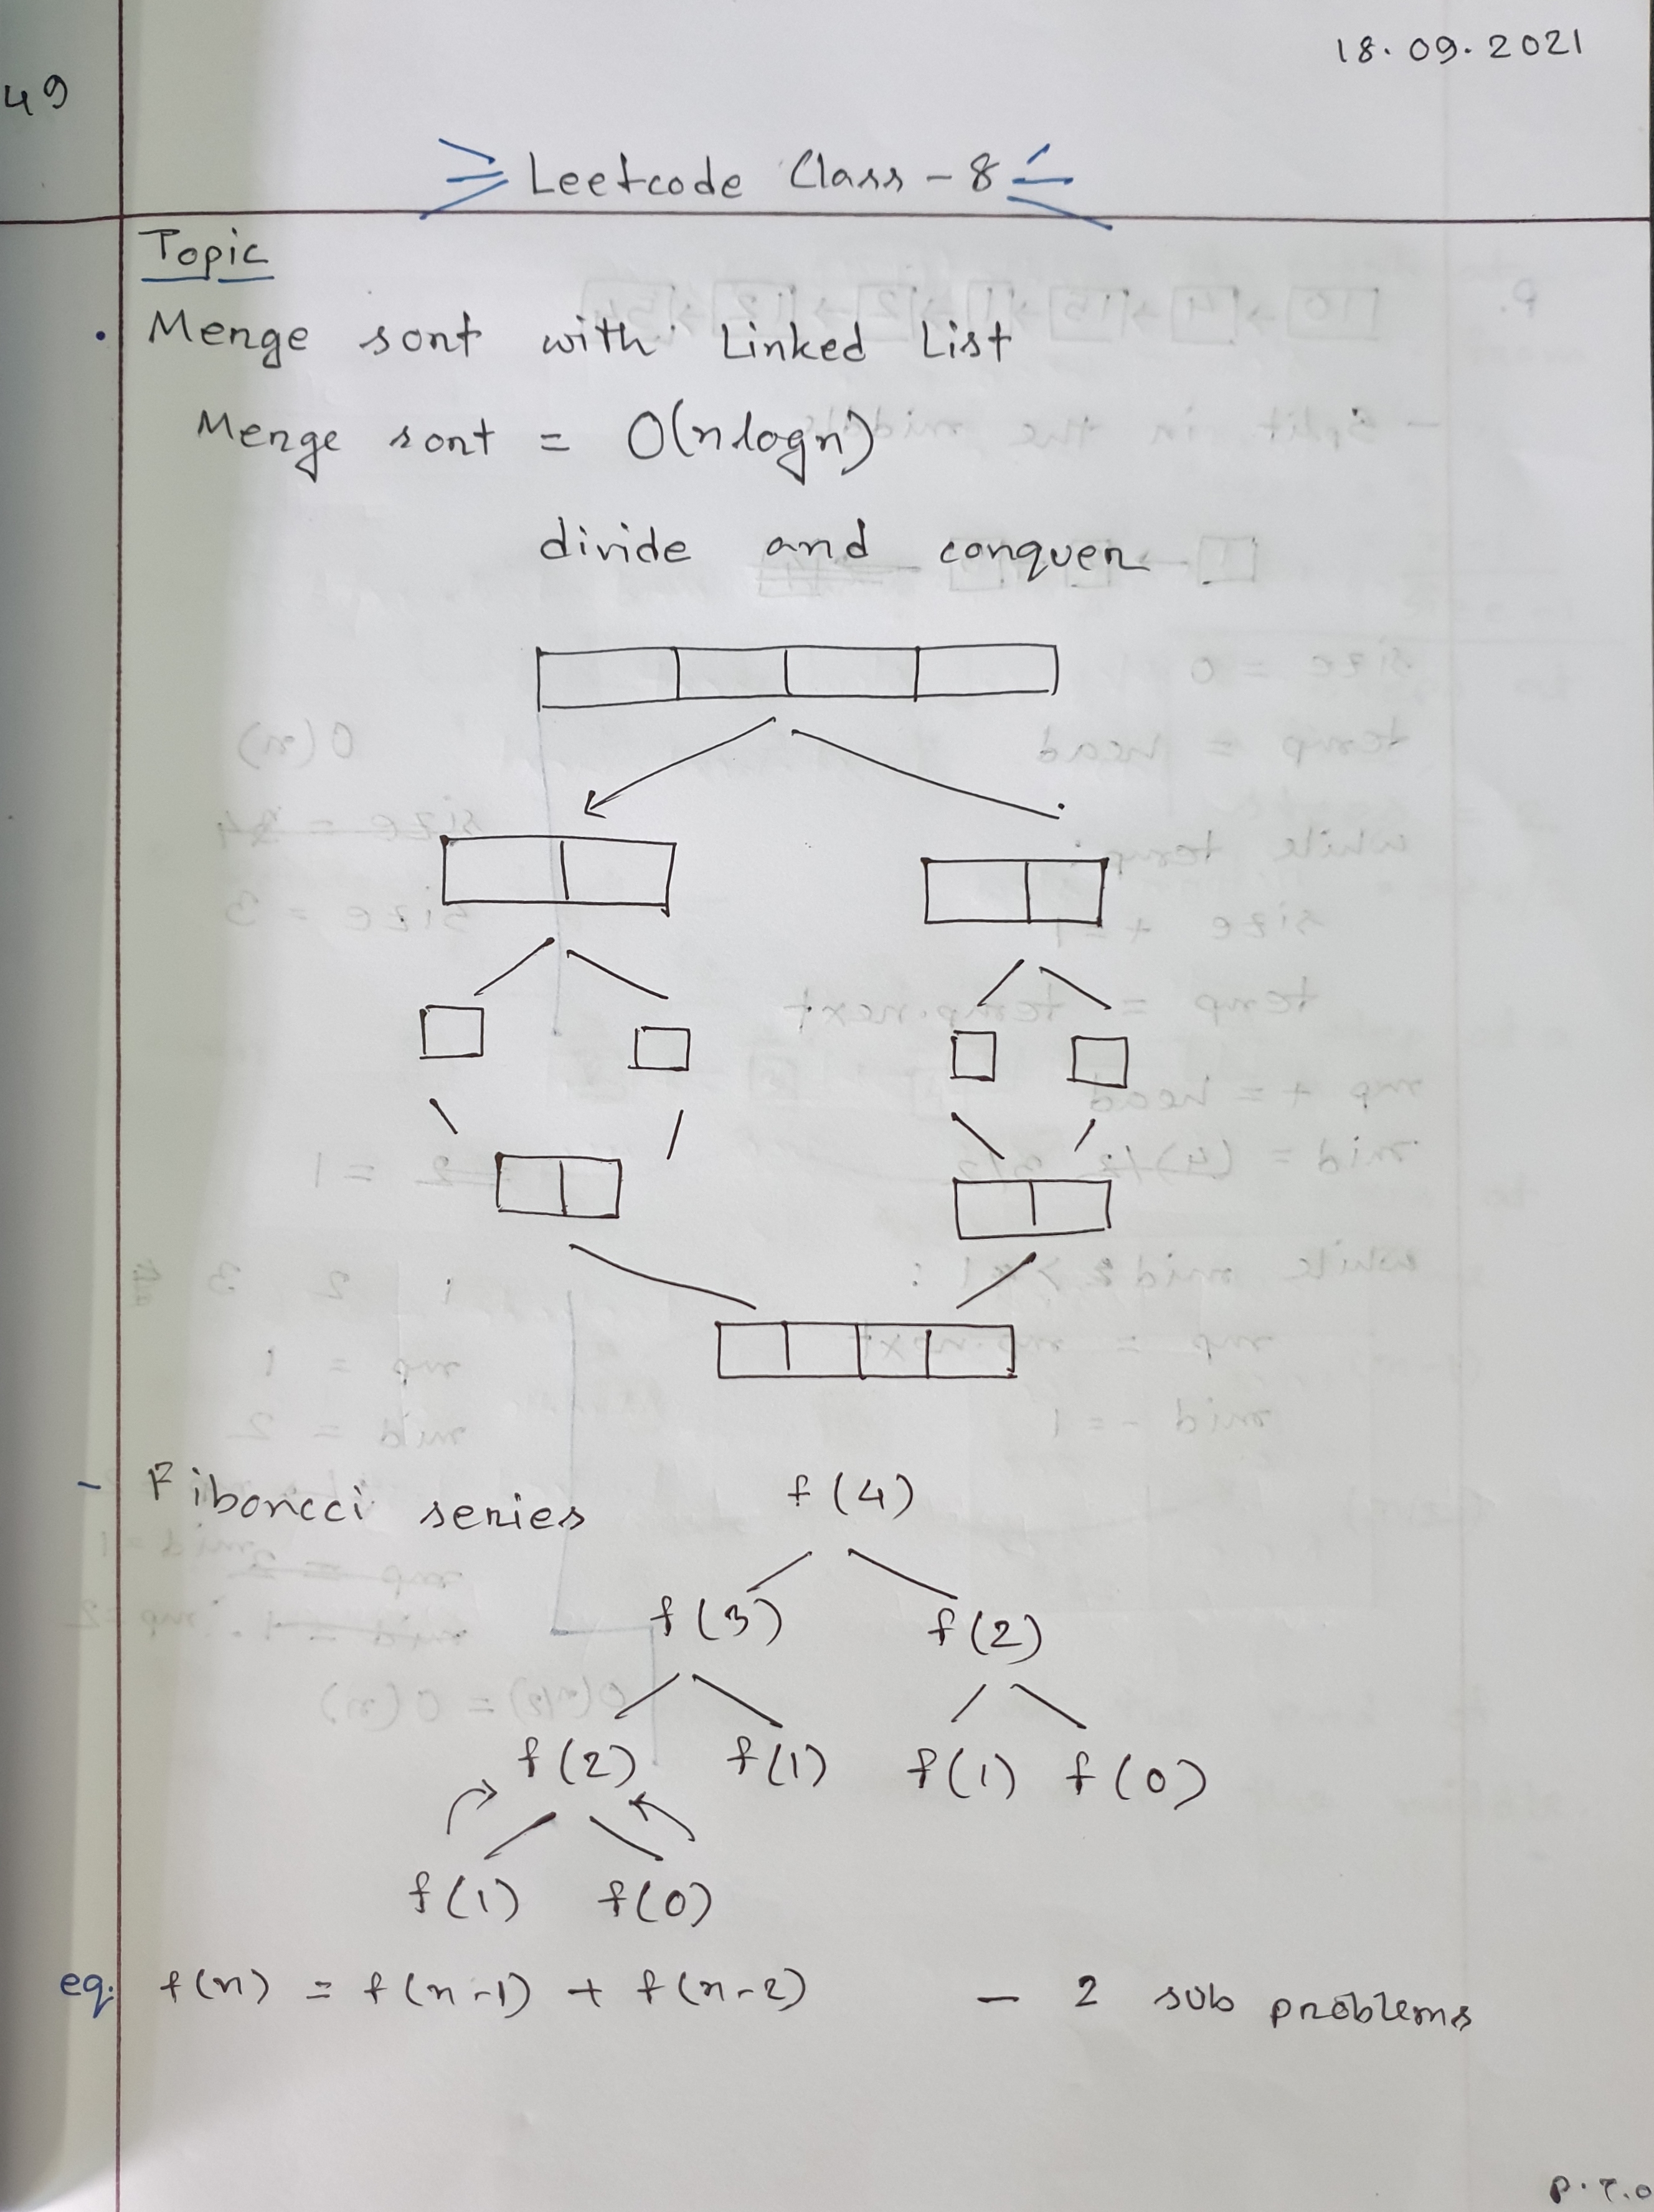 18.09.2021
49
Leetcode Class - 8
Topic
. Merge sort with Linked List
Merge sort = O(n logn)
divide and conquer
- Fiboncci series
f(4)
f(3) f(2)
f(2) f(1) f(1) f(0)
f(1) f(0)
eq. f(n) = f(n-1) + f(n-2) - 2 sub problems
P.T.O